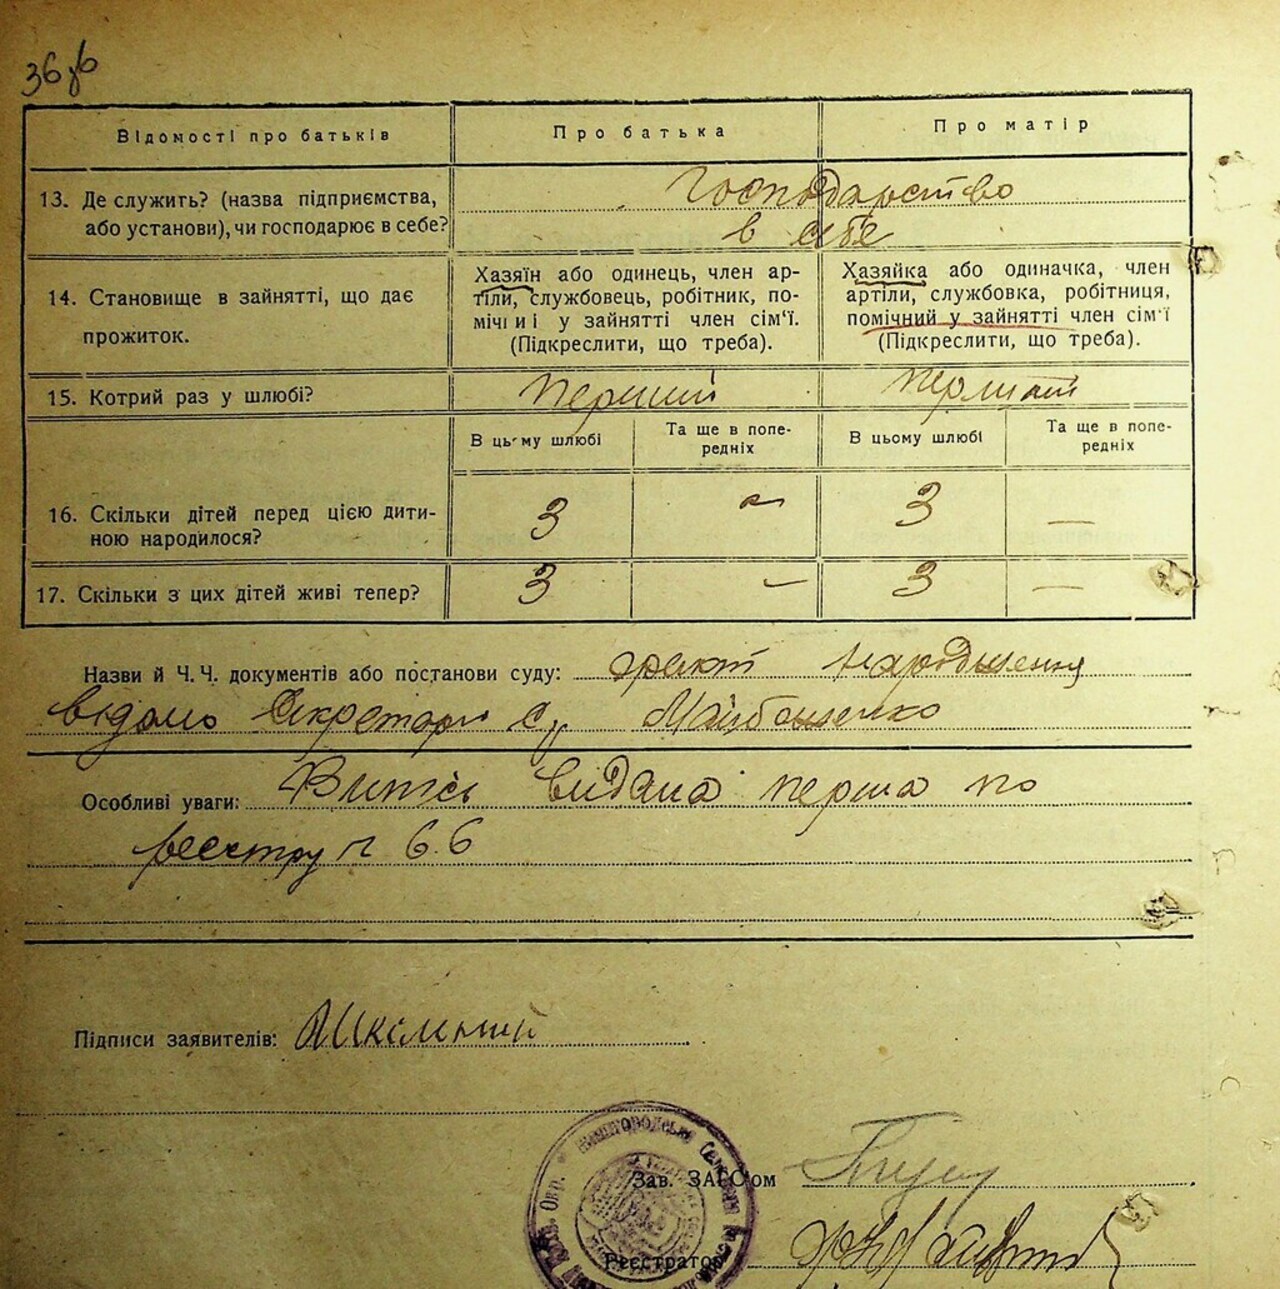 Відомості про батьків
Про батька
Про матір
13. Де служить? (назва підприємства, або установи), чи господарює в себе?
Господарство
в себе
14. Становище в зайнятті, що дає
прожиток.
Хазяїн або одинець, член ар-
тіли, службовець, робітник, по-
мічниі у зайнятті член сім'ї.
(Підкреслити, що треба).
Хазяйка або одиначка, член
артіли, службовка, робітниця,
помічний у зайнятті член сім'ї
(Підкреслити, що треба).
15. Котрий раз у шлюбі?
перший
перший
В цьому шлюбі
Та ще в попе-
редніх
В цьому шлюбі
Та ще в попе-
редніх
16. Скільки дітей перед цією дити-
ною народилося?
3 — 3 —
17. Скільки з цих дітей живі тепер?
3 — 3 —
Назви й Ч. Ч. документів або постанови суду: факт народження
відомо Секретарю с/р
Особливі уваги: Випись видана перша по
реєстру № 66
Підписи заявителів:
Зав. ЗАГС'ом
Реєстратор